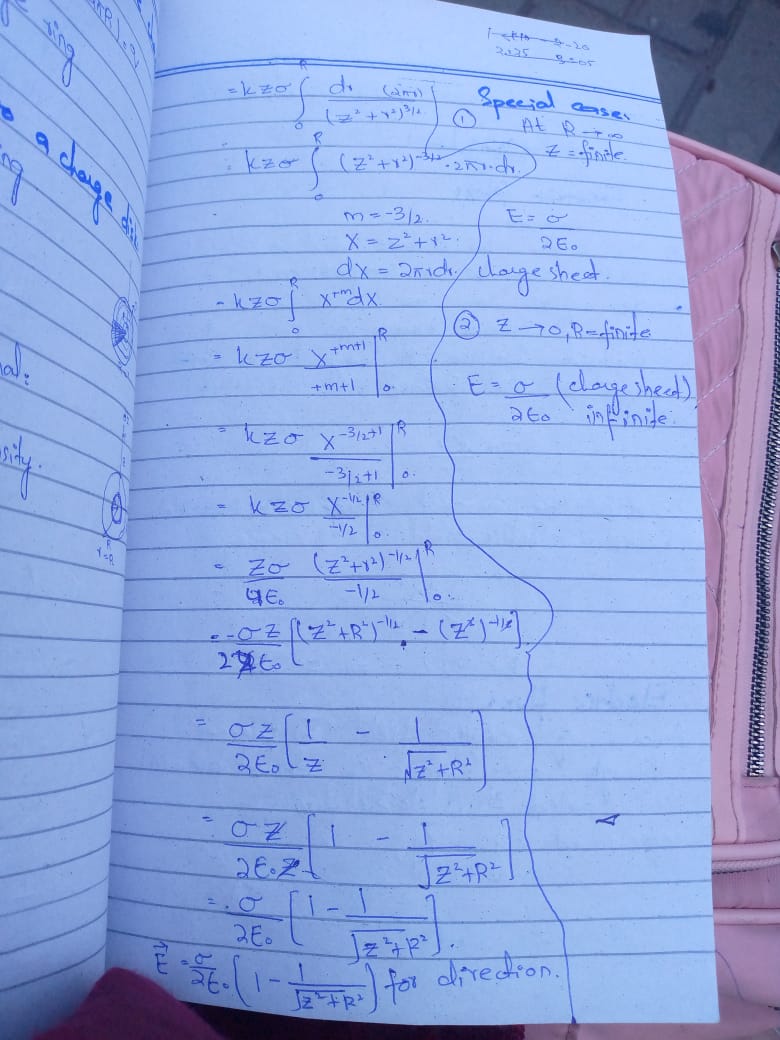 2025
ring
a charge disk
= kzσ ∫₀ᴿ dr (2πr) / (z² + r²)^3/2
= kzσ ∫₀ᴿ (z² + r²)^-3/2 · 2πr·dr
m = -3/2.
X = z² + r².
dx = 2πrdr.
= kzσ ∫₀ᴿ x^+m dx
= kzσ x^+m+1 / +m+1 |₀ᴿ
= kzσ x^-3/2+1 / -3/2+1 |₀ᴿ
= kzσ x^-1/2 / -1/2 |₀ᴿ
= zσ / 4ε₀ (z²+r²)^-1/2 / -1/2 |₀ᴿ
= -σz / 2ε₀ [(z²+R²)^-1/2 - (z²)^-1/2]
= σz / 2ε₀ [1/z - 1/√z²+R²]
= σz / 2ε₀z [1 - 1/√z²+R²]
= σ / 2ε₀ [1 - 1/√z²+R²].
E⃗ = σ/2ε₀ (1 - 1/√z²+R²) for direction.
Special cases
① At R → ∞
z = finite.
E = σ / 2ε₀
charge sheet.
② z → 0, R = finite
E = σ / 2ε₀ (charge sheet)
infinite.